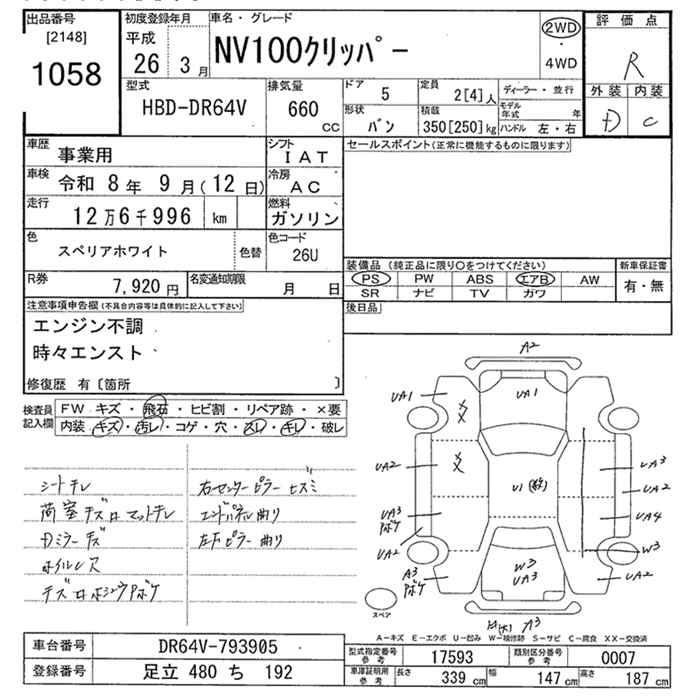 出品番号
[2148]
1058
初度登録年月
平成
26 3 月
車名・グレード
NV100クリッパー
2WD
・
4WD
評価点
R
外装 内装
D C
型式
HBD-DR64V
排気量
660
cc
ドア
5
定員
2[4]人
ディーラー・並行
形状
バン
積載
350[250]kg
モデル年式 年
ハンドル 左・右
車歴 事業用
シフト
IAT
セールスポイント(正常に機能するものに限ります)
車検 令和 8年 9月(12日)
冷房
AC
走行 12万6千996 km
燃料
ガソリン
色
スペリアホワイト
色替
色コード
26U
R券 7,920円
名変通知期限
月 日
装備品(純正品に限り○をつけてください)
PS PW ABS エアB AW
SR ナビ TV カワ
新車保証書
有・無
注意事項申告欄(不具合内容等は具体的に記入して下さい)
エンジン不調
時々エンスト
修復歴 有〔箇所 〕
後日品
検査員記入欄
FW キズ・飛石・ヒビ割・リペア跡・×要
内装・キズ・汚レ・コゲ・穴・スレ・キレ・破レ
シートキレ
荷室キズロマットキレ
Dミラーキズ
ホイルレス
右センターピラーヒズミ
エンドパネル曲り
左Fピラー曲り
A2
UA1
UA1
UA2
UA3
ボケ
UA2
A3
ボケ
U1
UA3
UA2
UA4
W3
UA2
W3
UA3
A3
スペア
A−キズ E−エクボ U−凹み W−補修跡 S−サビ C−腐食 XX−交換済
車台番号 DR64V-793905
登録番号 足立 480 ち 192
型式指定番号
参考
17593
類別区分番号
参考
0007
車庫証明用
参考
長さ 339 cm 幅 147 cm 高さ 187 cm